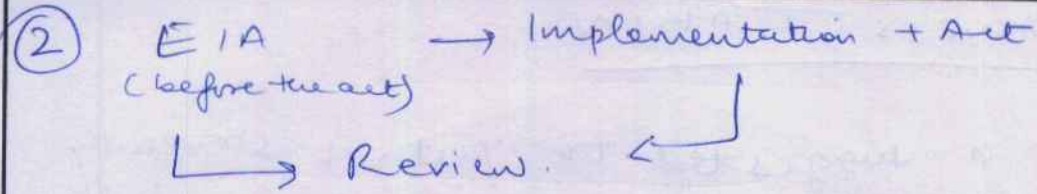 ② EIA → Implementation + Act
(before the act)
→ Review. ←